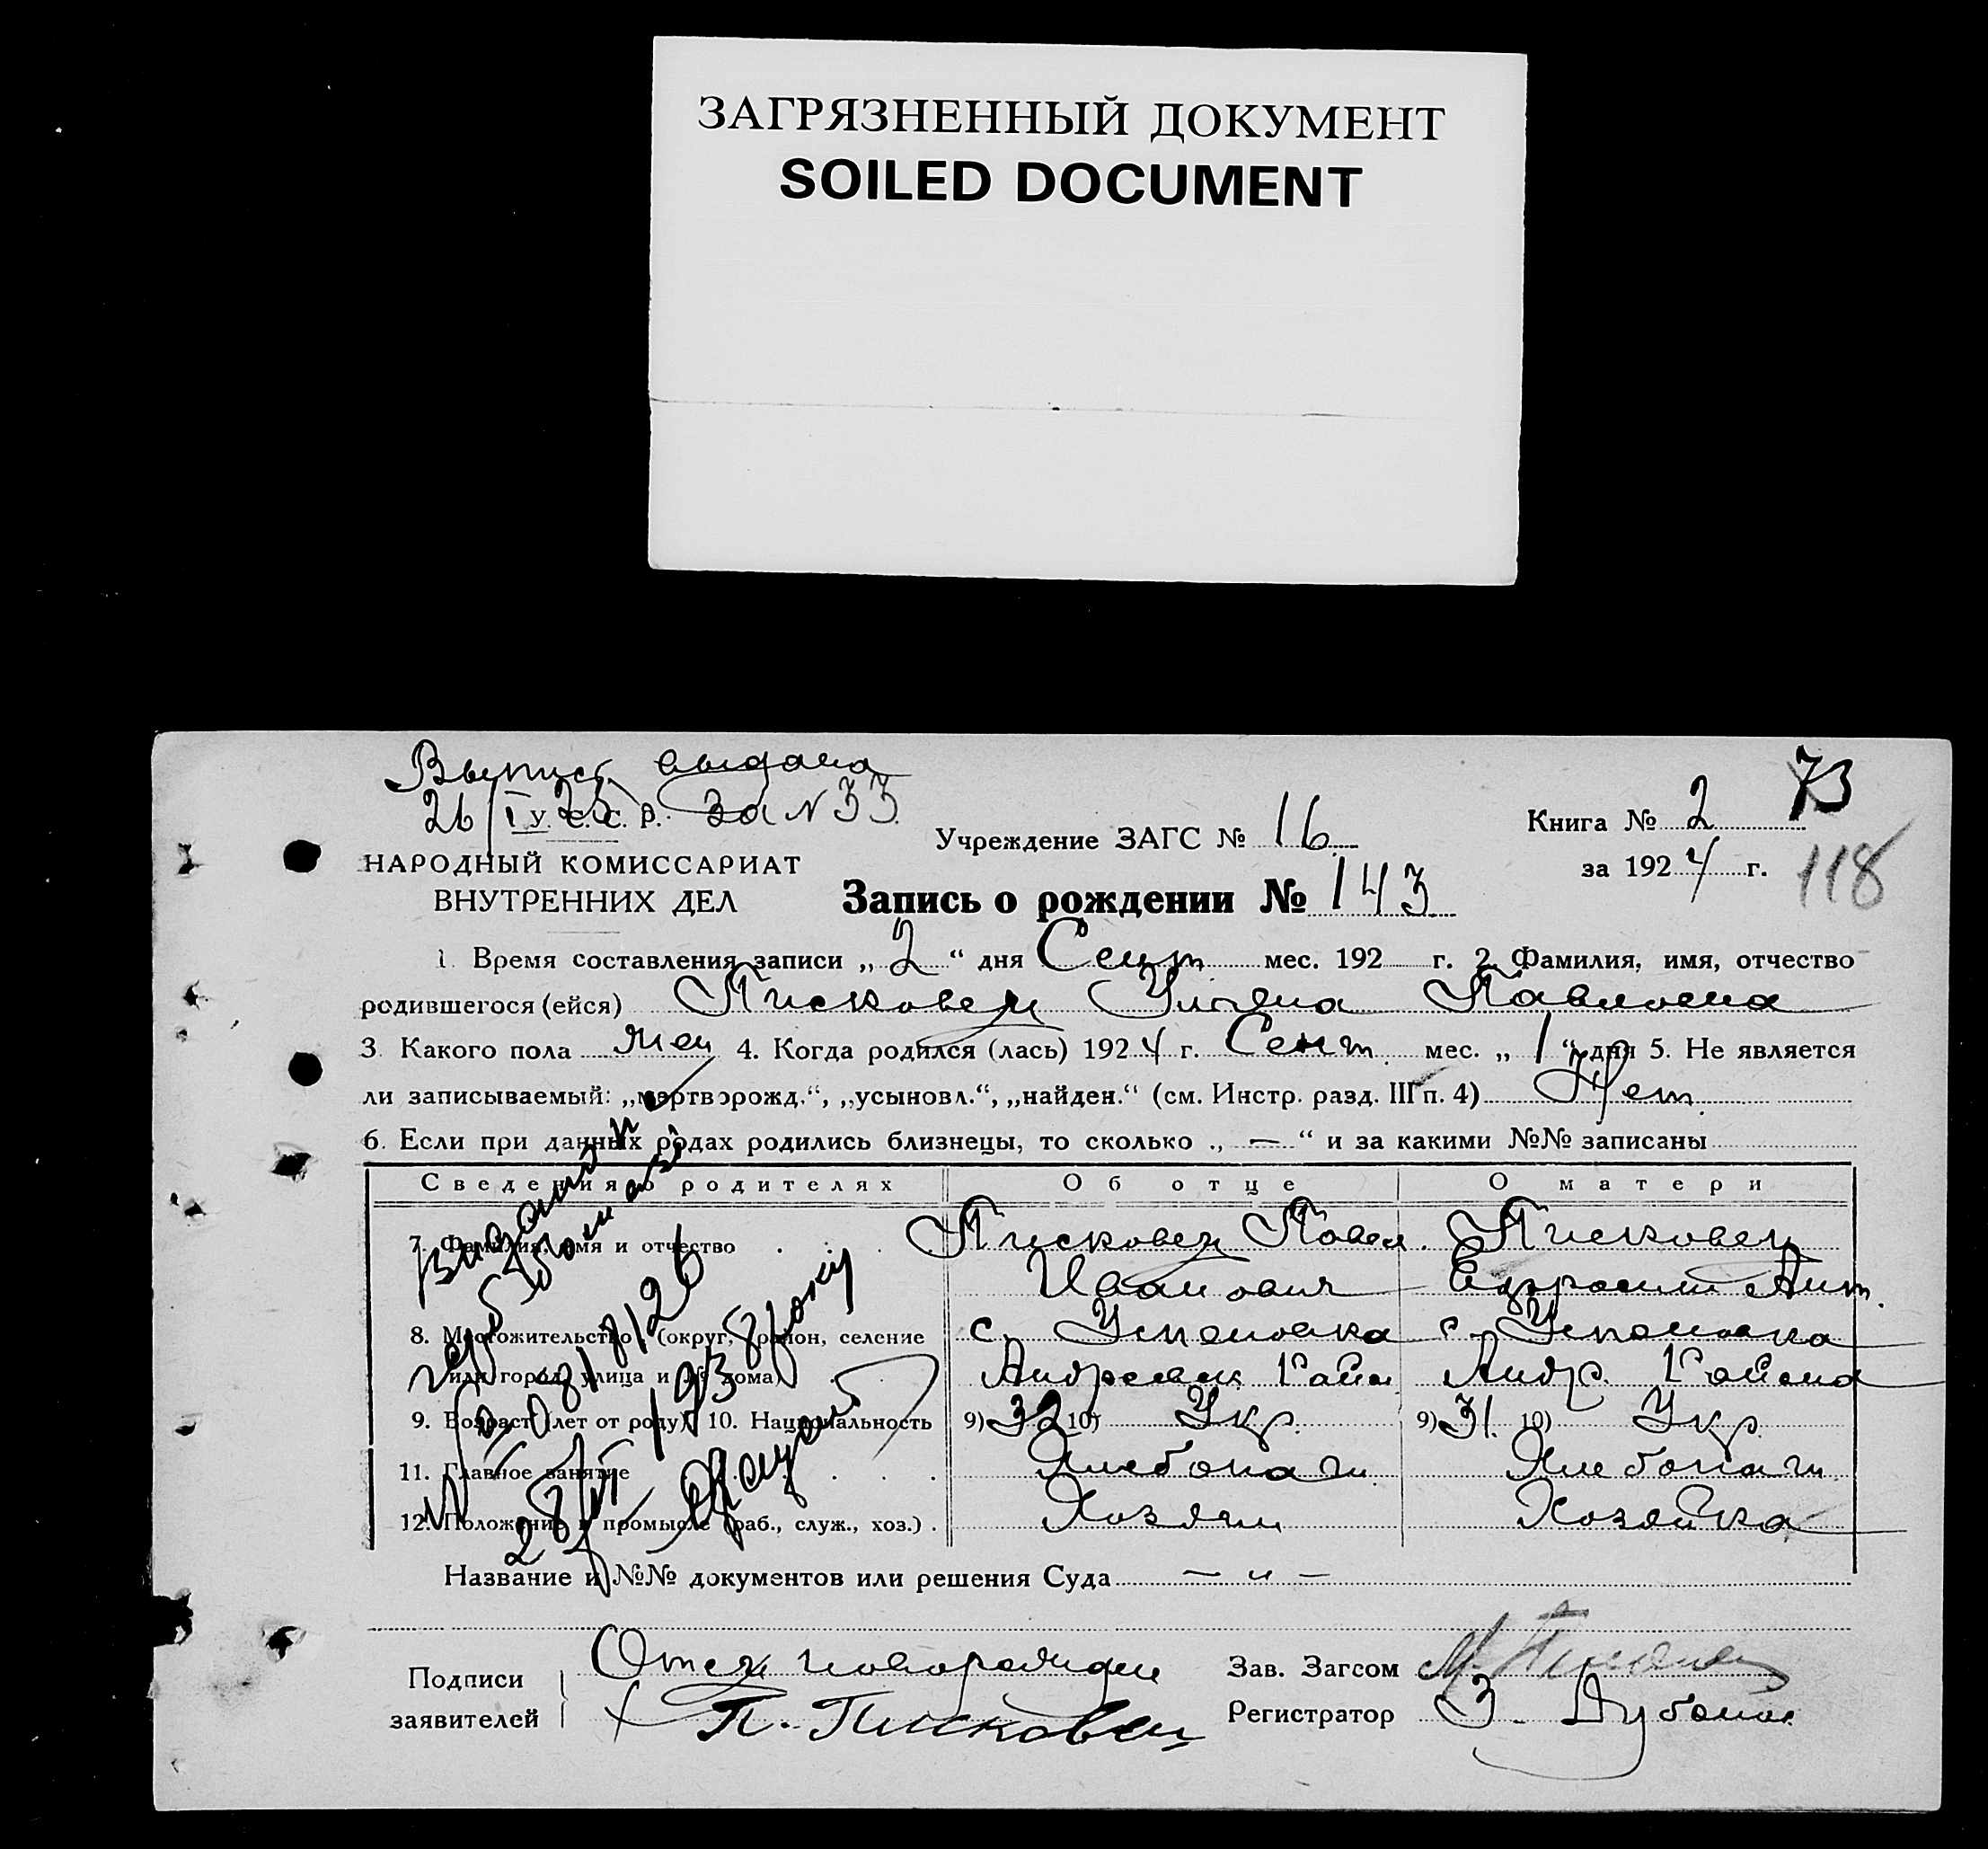 ЗАГРЯЗНЕННЫЙ ДОКУМЕНТ
SOILED DOCUMENT
Выпись выдана
26/I 25 за N 33
У. С. С. Р.
НАРОДНЫЙ КОМИССАРИАТ
ВНУТРЕННИХ ДЕЛ
Учреждение ЗАГС № 16
Книга № 2
73
за 1924 г.
118
Запись о рождении № 143
1. Время составления записи „2“ дня Сент. мес. 192 г. 2. Фамилия, имя, отчество
родившегося (ейся) Писковец Ульяна Павловна
3. Какого пола жен 4. Когда родился (лась) 1924 г. Сент. мес. „1“ дня 5. Не является
ли записываемый: „мертворожд.“, „усыновл.“, „найден.“ (см. Инстр. разд. III п. 4) Нет.
6. Если при данных родах родились близнецы, то сколько „—“ и за какими №№ записаны
Сведения о родителях Об отце О матери
7. Фамилия, имя и отчество Писковец Павел Писковец
Иванович
8. Местожительство (округ, район, селение с. Успеновка с. Успеновка
или город, улица и № дома) Андреевск. Район Андр. Района
9. Возраст (лет от роду) 10. Национальность 9) 32 10) Укр. 9) 31 10) Укр.
11. Главное занятие Хлебопаш. Хлебопаш.
12. Положение в промысле (раб., служ., хоз.) Хозяин Хозяйка
Название и №№ документов или решения Суда — „ —
Подписи
заявителей
Отец новорожден
П. Писковец
Зав. Загсом
Регистратор З.